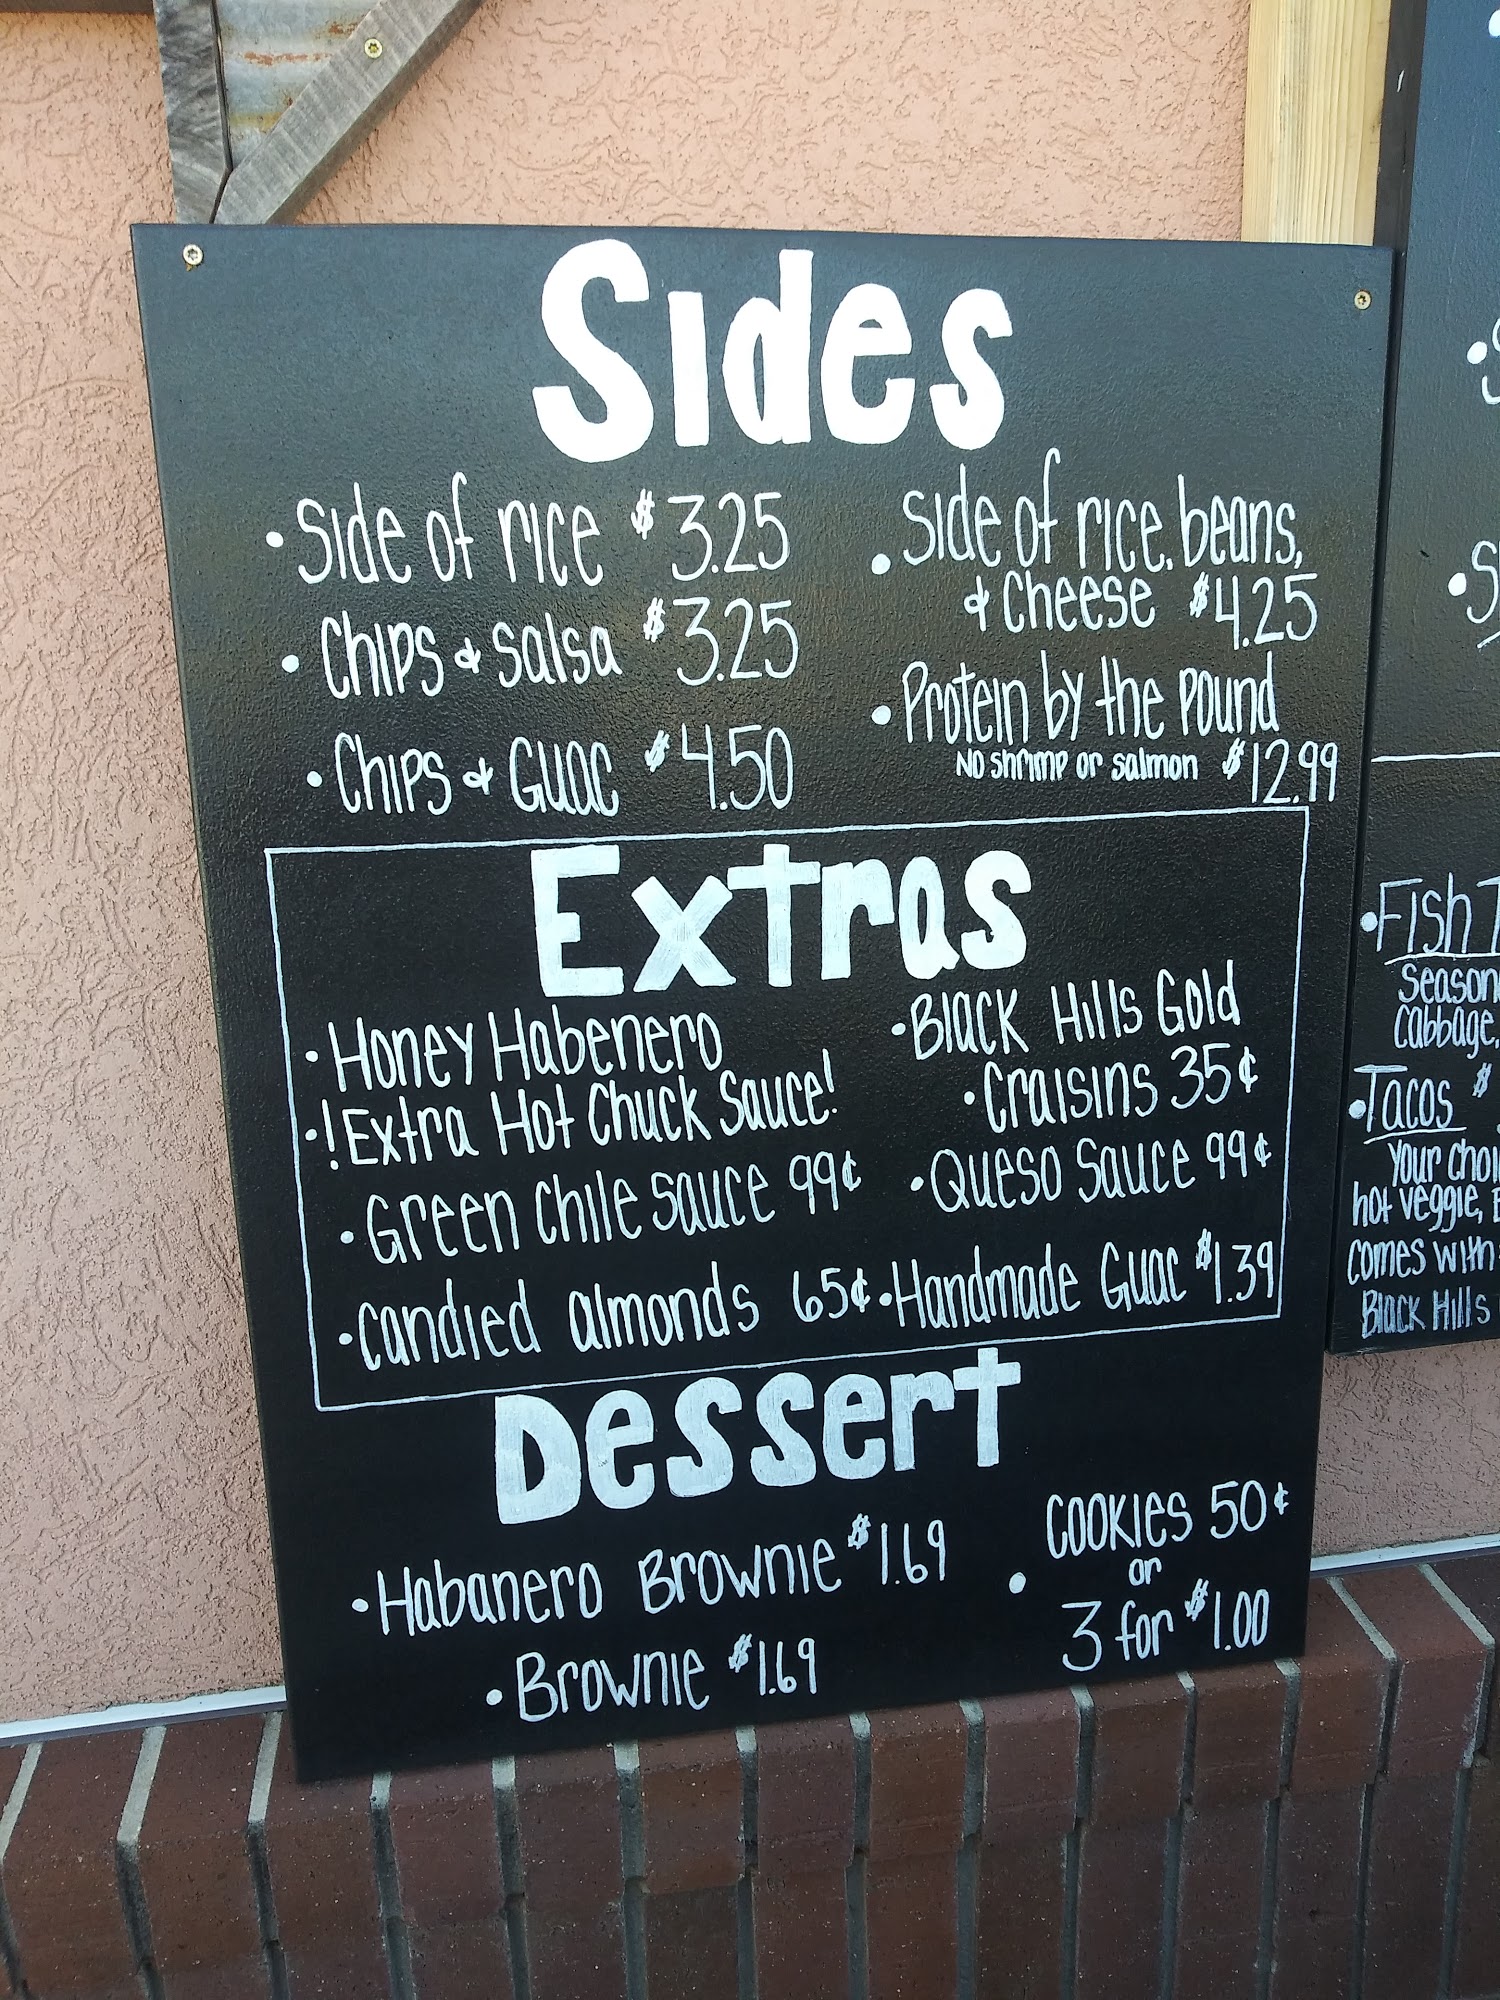 Sides
• Side of rice $3.25
• Chips & Salsa $3.25
• Chips & Guac $4.50
• Side of rice, beans,
& Cheese $4.25
• Protein by the Pound
No shrimp or salmon $12.99
Extras
• Honey Habenero
• !Extra Hot Chuck Sauce!
• Green Chile Sauce 99¢
• Candied almonds 65¢
• Black Hills Gold
• Craisins 35¢
• Queso Sauce 99¢
• Handmade Guac $1.39
Dessert
• Habanero Brownie $1.69
• Brownie $1.69
• Cookies 50¢
or
3 for $1.00
• Fish
Season
Cabbage,
• Tacos $
Your
hot veggie,
comes with
Black Hills